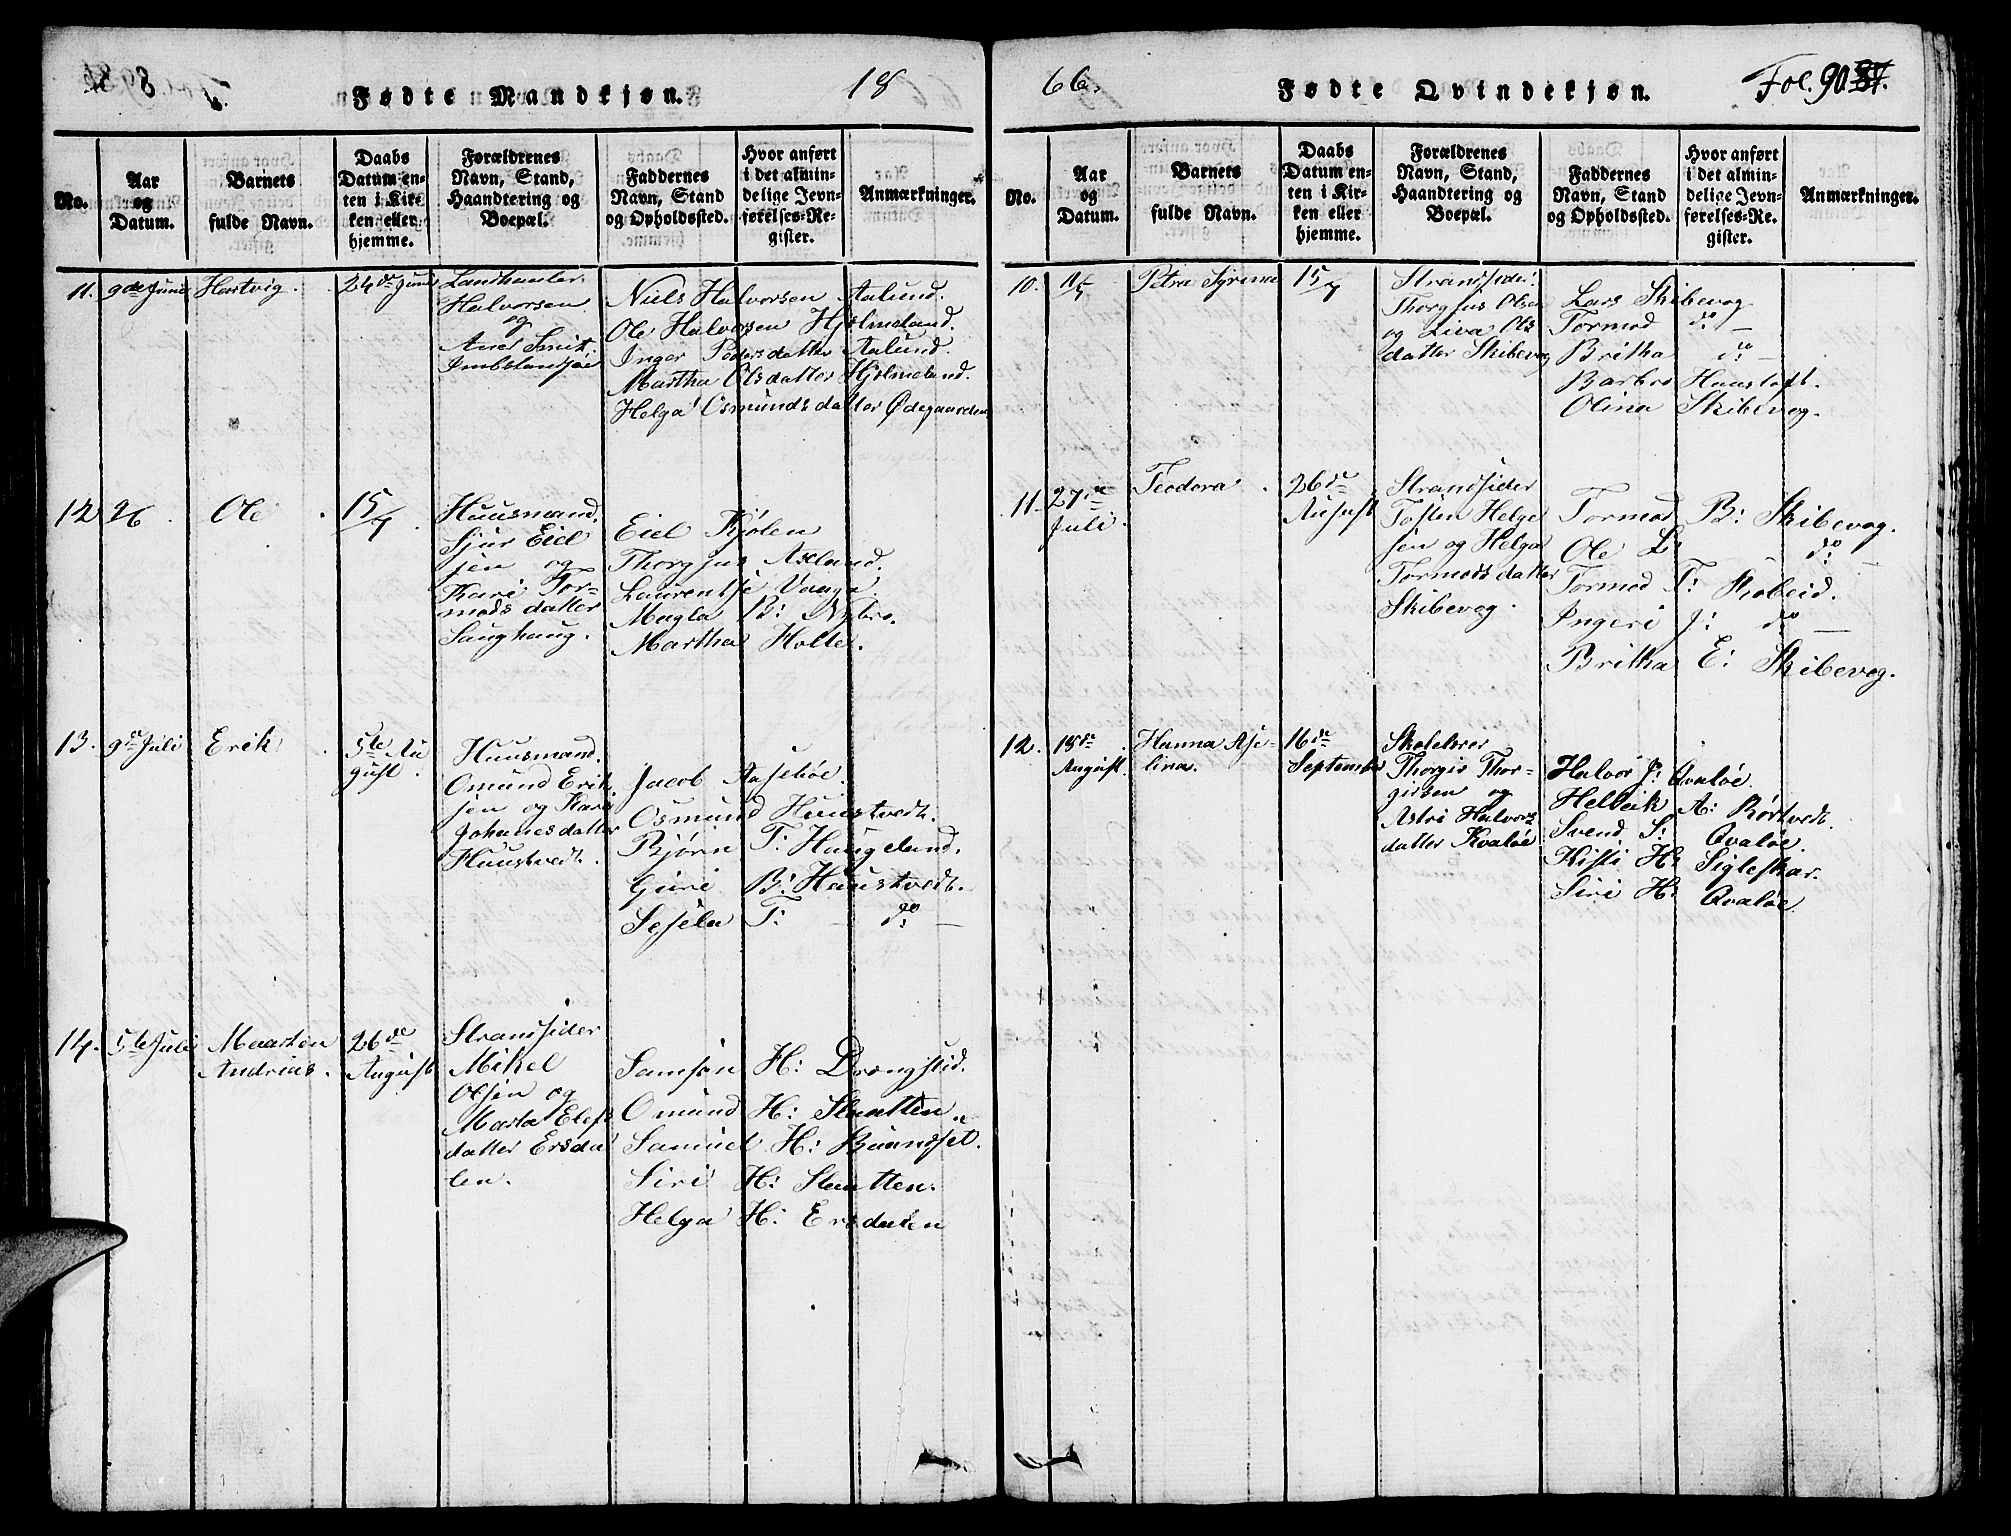 Fødte Mandkjøn. 18
No.
Aar og Datum.
Barnets fulde Navn.
Daabs Datum enten i Kirken eller hjemme.
Forældrenes Navn, Stand, Haandtering og Boepæl.
Faddernes Navn, Stand og Opholdssted.
Hvor anført i det almindelige Jevnførelses-Register.
Anmærkninger.
11. 9de Juni Hartvig. 24de Juni
Halvorsen
og
Niels Halvorsen Aalund.
Ole Halvorsen Hjelmeland.
Inger Pedersdatter Aalund.
Martha Olsdatter Hjelmeland.
Helga Osmundsdatter Ødegaarden
12 26. Ole. 15/7.
Huusmand.
Sjur Eiel
sen og
Kari Tor=
modsdatter
Saughaug.
Eiel Kjølen
Thorgjus Axland.
Laurentse Vaaga.
Magla B: Nybro.
Martha Holte.
13. 9de Juli Erik. 5te Au
gust.
Huusmand.
Omund Erik
sen og Kari
Johanesdatter
Huustvedt.
Jacob Aasebøe.
Osmund Huustvedt.
Bjørn T: Haugeland.
Guri B: Haustvedt.
Sesela T: do
14. 5te Juli Maarten
Andrias. 26de
August
Strandsider
Mikel
Olsen og
Marta Elefs
datter Ersda
len.
Samson H: Drengstid.
Omund H: Slaatten.
Samuel H: Bundset.
Siri H: Slaatten.
Helga H: Ersdalen
66. Fødte Qvindekjøn. Fol. 90.
No.
Aar og Datum.
Barnets fulde Navn.
Daabs Datum enten i Kirken eller hjemme.
Forældrenes Navn, Stand, Haandtering og Boepæl.
Faddernes Navn, Stand og Opholdssted.
Hvor anført i det almindelige Jevnførelses-Register.
Anmærkninger.
10. Petra Syrine 15/7
Strandsider
Thorgjus Olsen
og Liva Ols
datter Skibevog
Lars Skibevog
Tormod do
Britha do
Barbro Haustoft.
Olina Skibevog.
11. 27de
Juli. Teodora. 26de
August
Strandsider
Tosten Helge
sen og Helga
Tormodsdatter
Skibevog.
Tormod B: Skibevog.
Ole L: do
Tormod T: Skobeid.
Ingeri J: do
Britha E: Skibevog.
12. 18de
August. Hanna Ase=
lina. 16de
September
Skolelærer
Thorgis Thor=
girsen og
Astri Halvors
datter Kvaløe.
Halvor J: Qvaløe.
Helleik A: Rørtvedt.
Svend S: Qvaløe.
Kisti H: Sigleskar.
Siri H: Qvaløe.